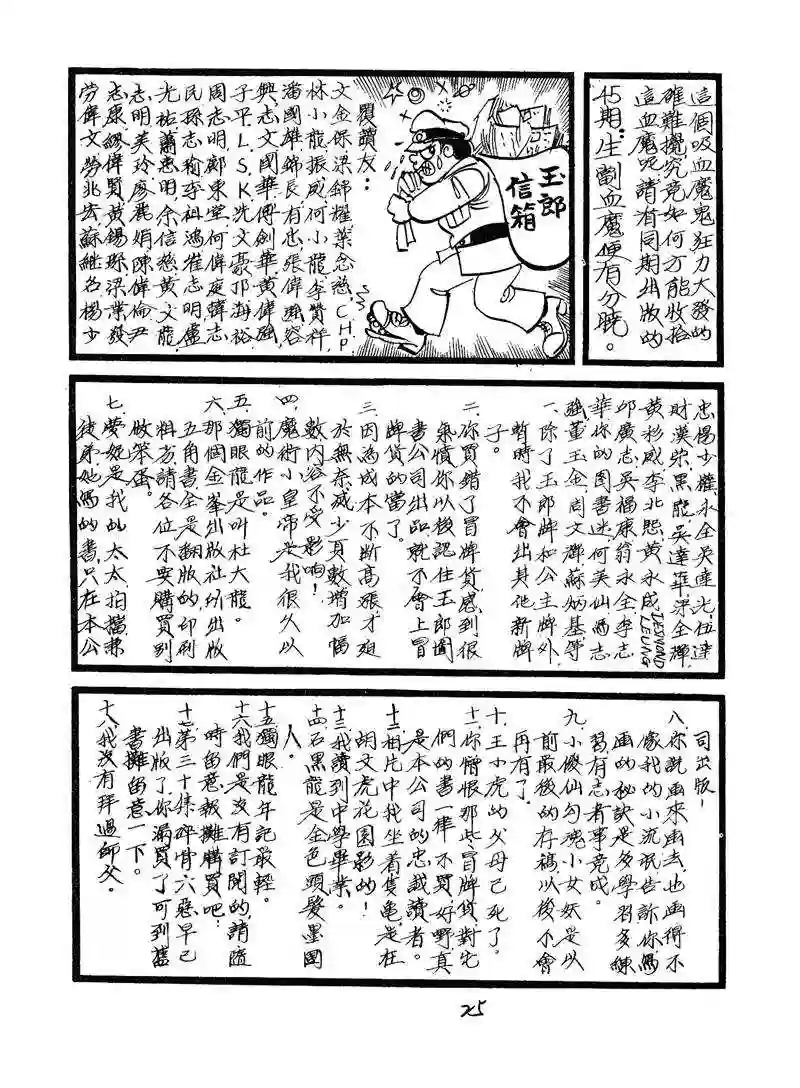 這個吸血魔鬼狂力大發的
確難攪究竟如何才能收拾
這血魔呢請有同期出版的
45期:生劏血魔便有分曉。
玉郎
信箱
覆讀友：
文金保梁錦耀葉念慈,CHP.
林小龍振威何小龍李贊祥,
潘國雄錦長有忠張偉強容
興志文國華傅劍華黃偉強
子平L.S.K冼文豪邝海裕
周志明鄺東堂何偉庭鍾志
民孫志榆李祖鴻崔志明盧
光祐蕭惠明,余信慈黃文龍
志明美玲廖麗娟陳偉倫尹
志康繆偉賢黃錫球梁業發
勞偉文勞兆玄蘇繼名楊少
忠楊少雄永全吳達光伍達
財漢榮黑龍吳達華梁全輝
黃杉威李北熙黃永成DESMOND LEUNG
邱廣志吳福康翁永全李志
華你的圖書迷何美仙馮志
強董玉金周文鄧蘇炳基等
一.除了玉郎牌和公主牌外
暫時我不會出其他新牌
子。
二.你買錯了冒牌貨感到很
氣憤你以後認住玉郎圖
書公司出品,就不會上冒
牌貨的當了。
三.因為成本不斷高漲才迫
於無奈減少頁數增加幅
數內容不受影响!
四.魔術小皇帝是我很久以
前的作品。
五.獨眼龍是叫杜大龍。
六.那個金峯出版社所出版
五角書全是翻版的印刷
粗劣請各位不要購買別
做笨蛋。
七.夢妮是我的太太拍檔兼
徒弟她馮的書只在本公
司出版!
八.你說畫來畫去,也畫得不
像我的小流氓告訴你馮
画的秘訣是多學習多練
習有志者事竟成。
九.小傻仙勾魂小女妖是以
前最後的存稿以後不會
再有了。
十.王小虎的父母已死了。
十一.你憎恨那些冒牌貨對它
們的書一律不買,好嘢真
是本公司的忠誠讀者。
十二.相片中我坐着隻龜,是在
胡文虎花園影的!
十三.我讀到中學畢業。
十四.石黑龍是金色頭髮墨國
人。
十五.獨眼龍年記最輕。
十六.我們是沒有訂閱的,請隨
時留意報攤購買吧!
十七.第三十集碎骨六惡早已
出版了,你漏買了可到舊
書攤留意一下。
十八.我沒有拜過師父。
25